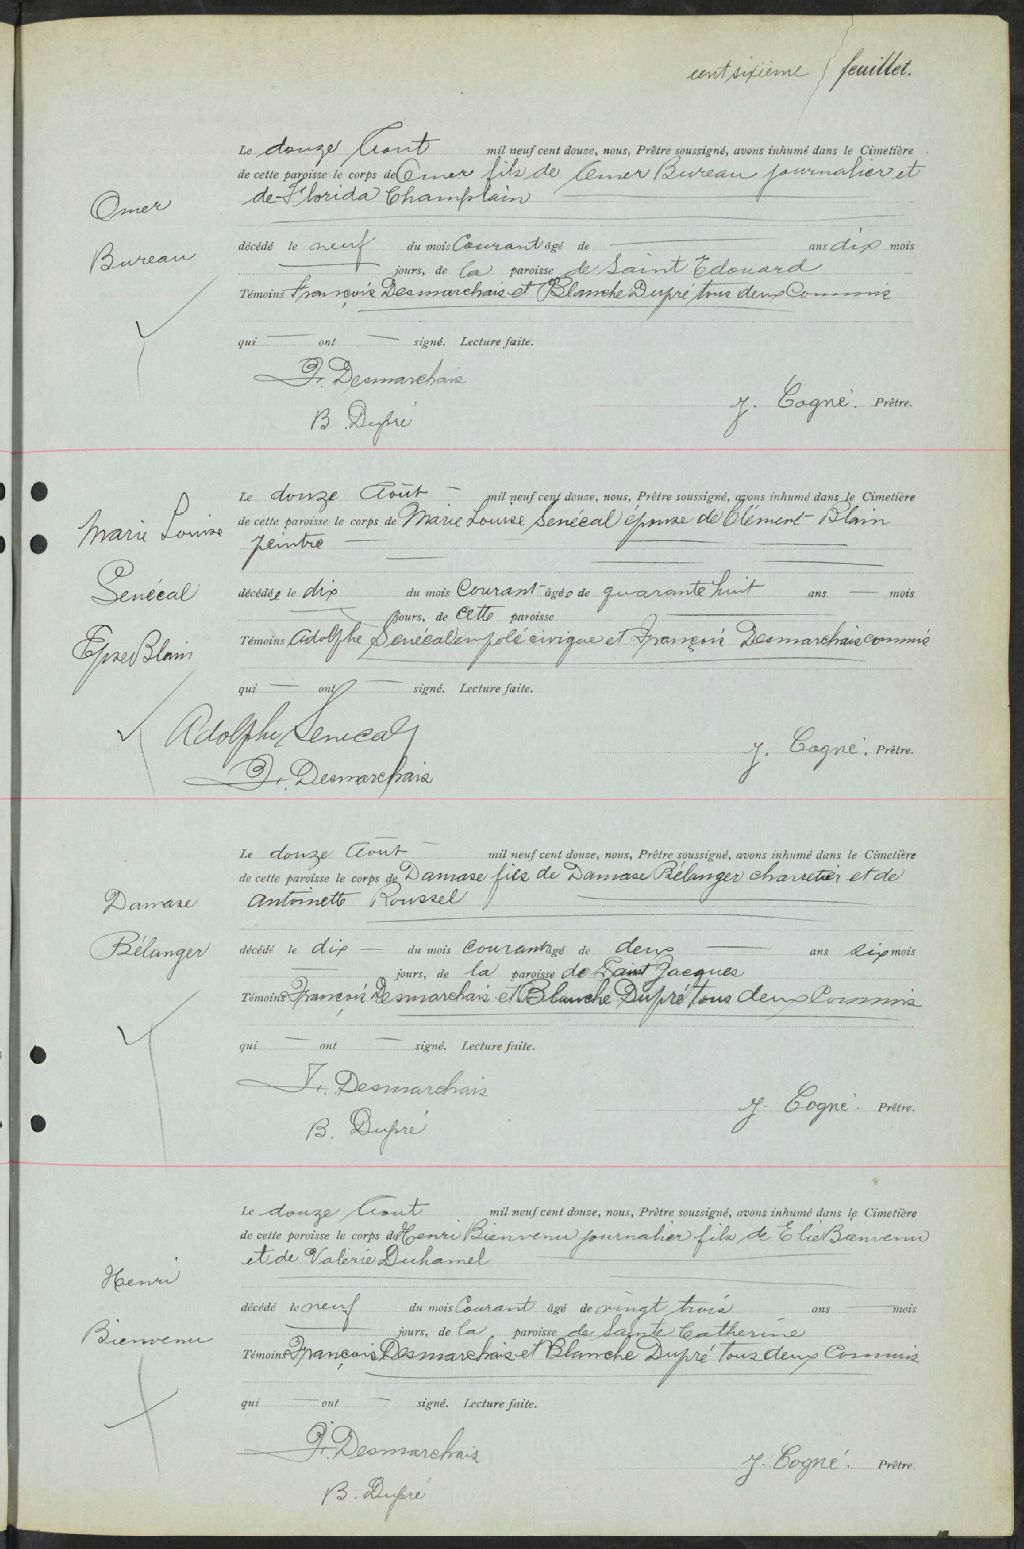 cent sixième feuillet.
Le douze Aout mil neuf cent douze, nous, Prêtre soussigné, avons inhumé dans le Cimetière
de cette paroisse le corps de Omer fils de Omer Bureau journalier et
de Florida Champlain
Omer
Bureau
décédé le neuf du mois Courant âgé de — ans dix mois
— jours, de la paroisse de Saint Edouard
Témoins François Desmarchais et Blanche Dupré tous deux Commis
qui — ont — signé. Lecture faite.
Fr. Desmarchais
J. Cogné. Prêtre.
B. Dupré
Le douze Août — mil neuf cent douze, nous, Prêtre soussigné, avons inhumé dans le Cimetière
de cette paroisse le corps de Marie Louise Senécal épouse de Clément Blain
peintre —
Marie Louise
Senécal
Epse Blain
décédée le dix du mois Courant âgée de quarante huit ans — mois
— jours, de cette paroisse
Témoins Adolphe Senécal enpolé civique et François Desmarchais commis
qui — ont — signé. Lecture faite.
Adolphe Senecal
J. Cogné. Prêtre.
Fr. Desmarchais
Le douze Août — mil neuf cent douze, nous, Prêtre soussigné, avons inhumé dans le Cimetière
de cette paroisse le corps de Damase fils de Damase Bélanger charretier et de
Antoinette Roussel
Damase
Bélanger
décédé le dix — du mois courant âgé de deux — ans six mois
— jours, de la paroisse de Saint Jacques
Témoins François Desmarchais et Blanche Dupré tous deux Commis
qui — ont — signé. Lecture faite.
Fr. Desmarchais
J. Cogné. Prêtre.
B. Dupré
Le douze Aout mil neuf cent douze, nous, Prêtre soussigné, avons inhumé dans le Cimetière
de cette paroisse le corps de Henri Bienvenu journalier fils de Elie Bienvenu
et de Valérie Duhamel
Henri
Bienvenu
décédé le neuf du mois Courant âgé de vingt trois ans — mois
— jours, de la paroisse de Sainte Catherine
Témoins François Desmarchais et Blanche Dupré tous deux Commis
qui — ont — signé. Lecture faite.
Fr. Desmarchais
J. Cogné. Prêtre.
B. Dupré